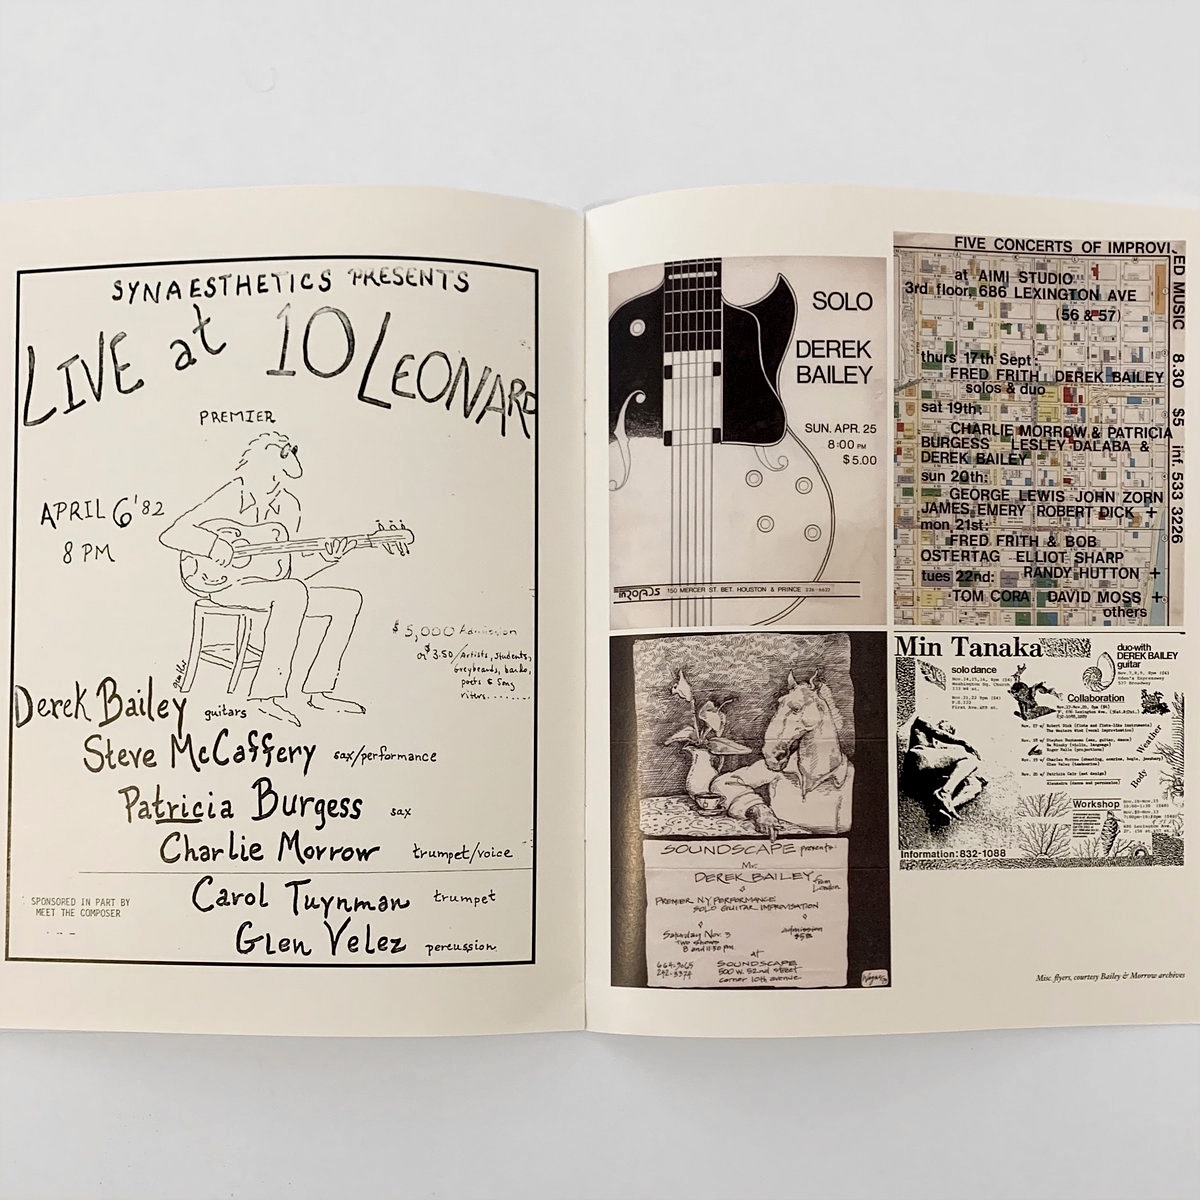 SYNAESTHETICS PRESENTS
LIVE at 10 LEONARD
PREMIER
APRIL 6 '82
8 PM
$5,000 Admission
or $3.50/Artists, Students,
Greybeards, bards,
poets & song
riters........
Derek Bailey guitars
Steve McCaffery sax/performance
Patricia Burgess sax
Charlie Morrow trumpet/voice
Carol Tuynman trumpet
Glen Velez percussion
SPONSORED IN PART BY
MEET THE COMPOSER
SOLO
DEREK
BAILEY
SUN. APR. 25
8:00 PM
$5.00
INROADS 150 MERCER ST. BET. HOUSTON & PRINCE 226-6622
FIVE CONCERTS OF IMPROVISED MUSIC 8.30 $5 inf. 533 3226
at AIMI STUDIO
3rd floor, 686 LEXINGTON AVE
(56 & 57)
thurs 17th Sept:
FRED FRITH DEREK BAILEY
solos & duo
sat 19th:
CHARLIE MORROW & PATRICIA
BURGESS LESLEY DALABA &
DEREK BAILEY
sun 20th:
GEORGE LEWIS JOHN ZORN
JAMES EMERY ROBERT DICK +
mon 21st:
FRED FRITH & BOB
OSTERTAG ELLIOT SHARP
tues 22nd: RANDY HUTTON +
TOM CORA DAVID MOSS +
others
SOUNDSCAPE presents:
Mr.
DEREK BAILEY from
London
PREMIER N.Y. PERFORMANCE
SOLO GUITAR IMPROVISATION
Saturday Nov. 3
Two shows
8 and 11:30 pm
admission
at
SOUNDSCAPE
500 W. 52nd street
corner 10th avenue
Min Tanaka
solo dance
duo with
DEREK BAILEY
guitar
Collaboration
Weather
Body
Workshop
Information: 832-1088
Misc. flyers, courtesy Bailey & Morrow archives